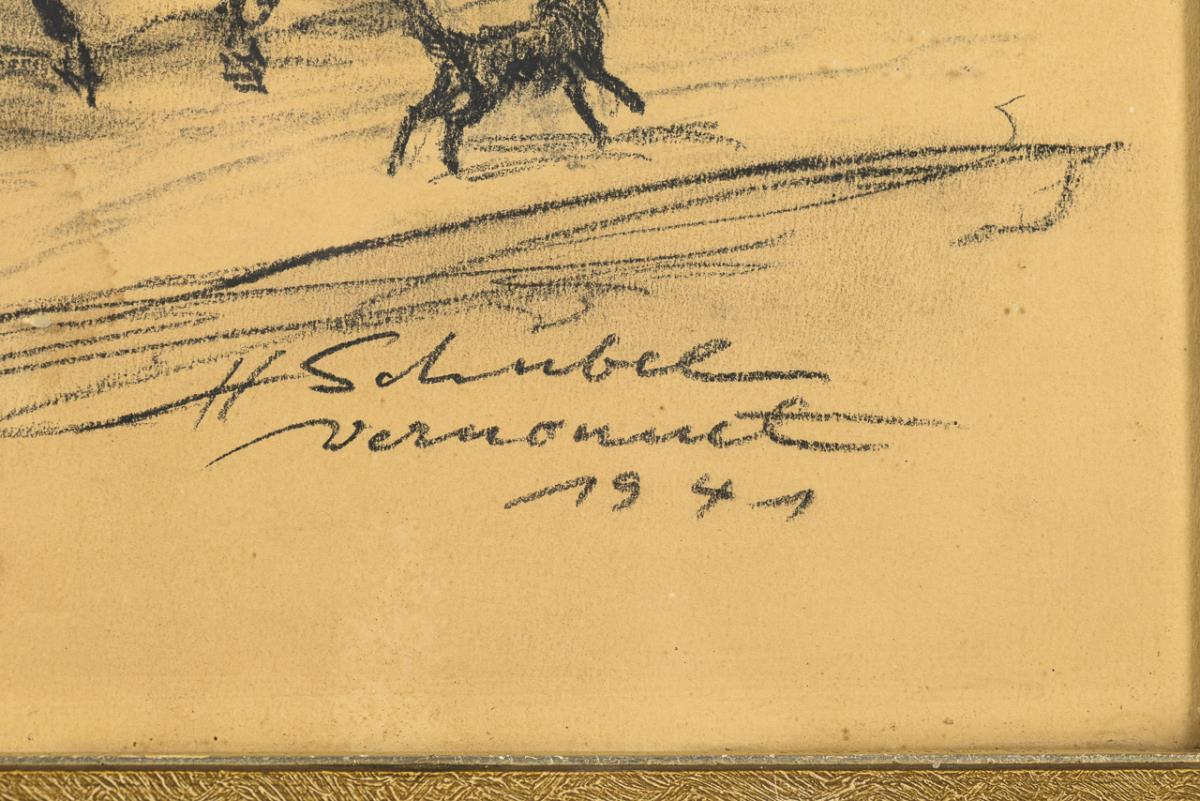 H Schubel
Vernonnet
1941